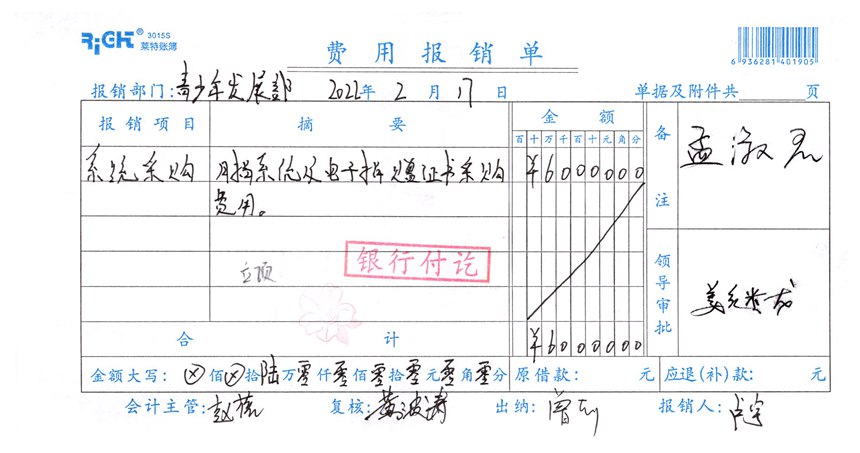 RiGHT® 3015S
莱特账簿
费用报销单
6 936281 401905
报销部门：青少年发展部 2022年 2 月 17 日 单据及附件共 页
报销项目 摘要 金额 备注
百十万千百十元角分
系统采购 月捐系统及电子捐赠证书采购 ¥6000000
费用。
银行付讫
立项
领导审批
合计 ¥6000000
金额大写：ⓧ佰ⓧ拾陆万零仟零佰零拾零元零角零分 原借款： 元 应退(补)款： 元
会计主管： 复核：黄波涛 出纳： 报销人：